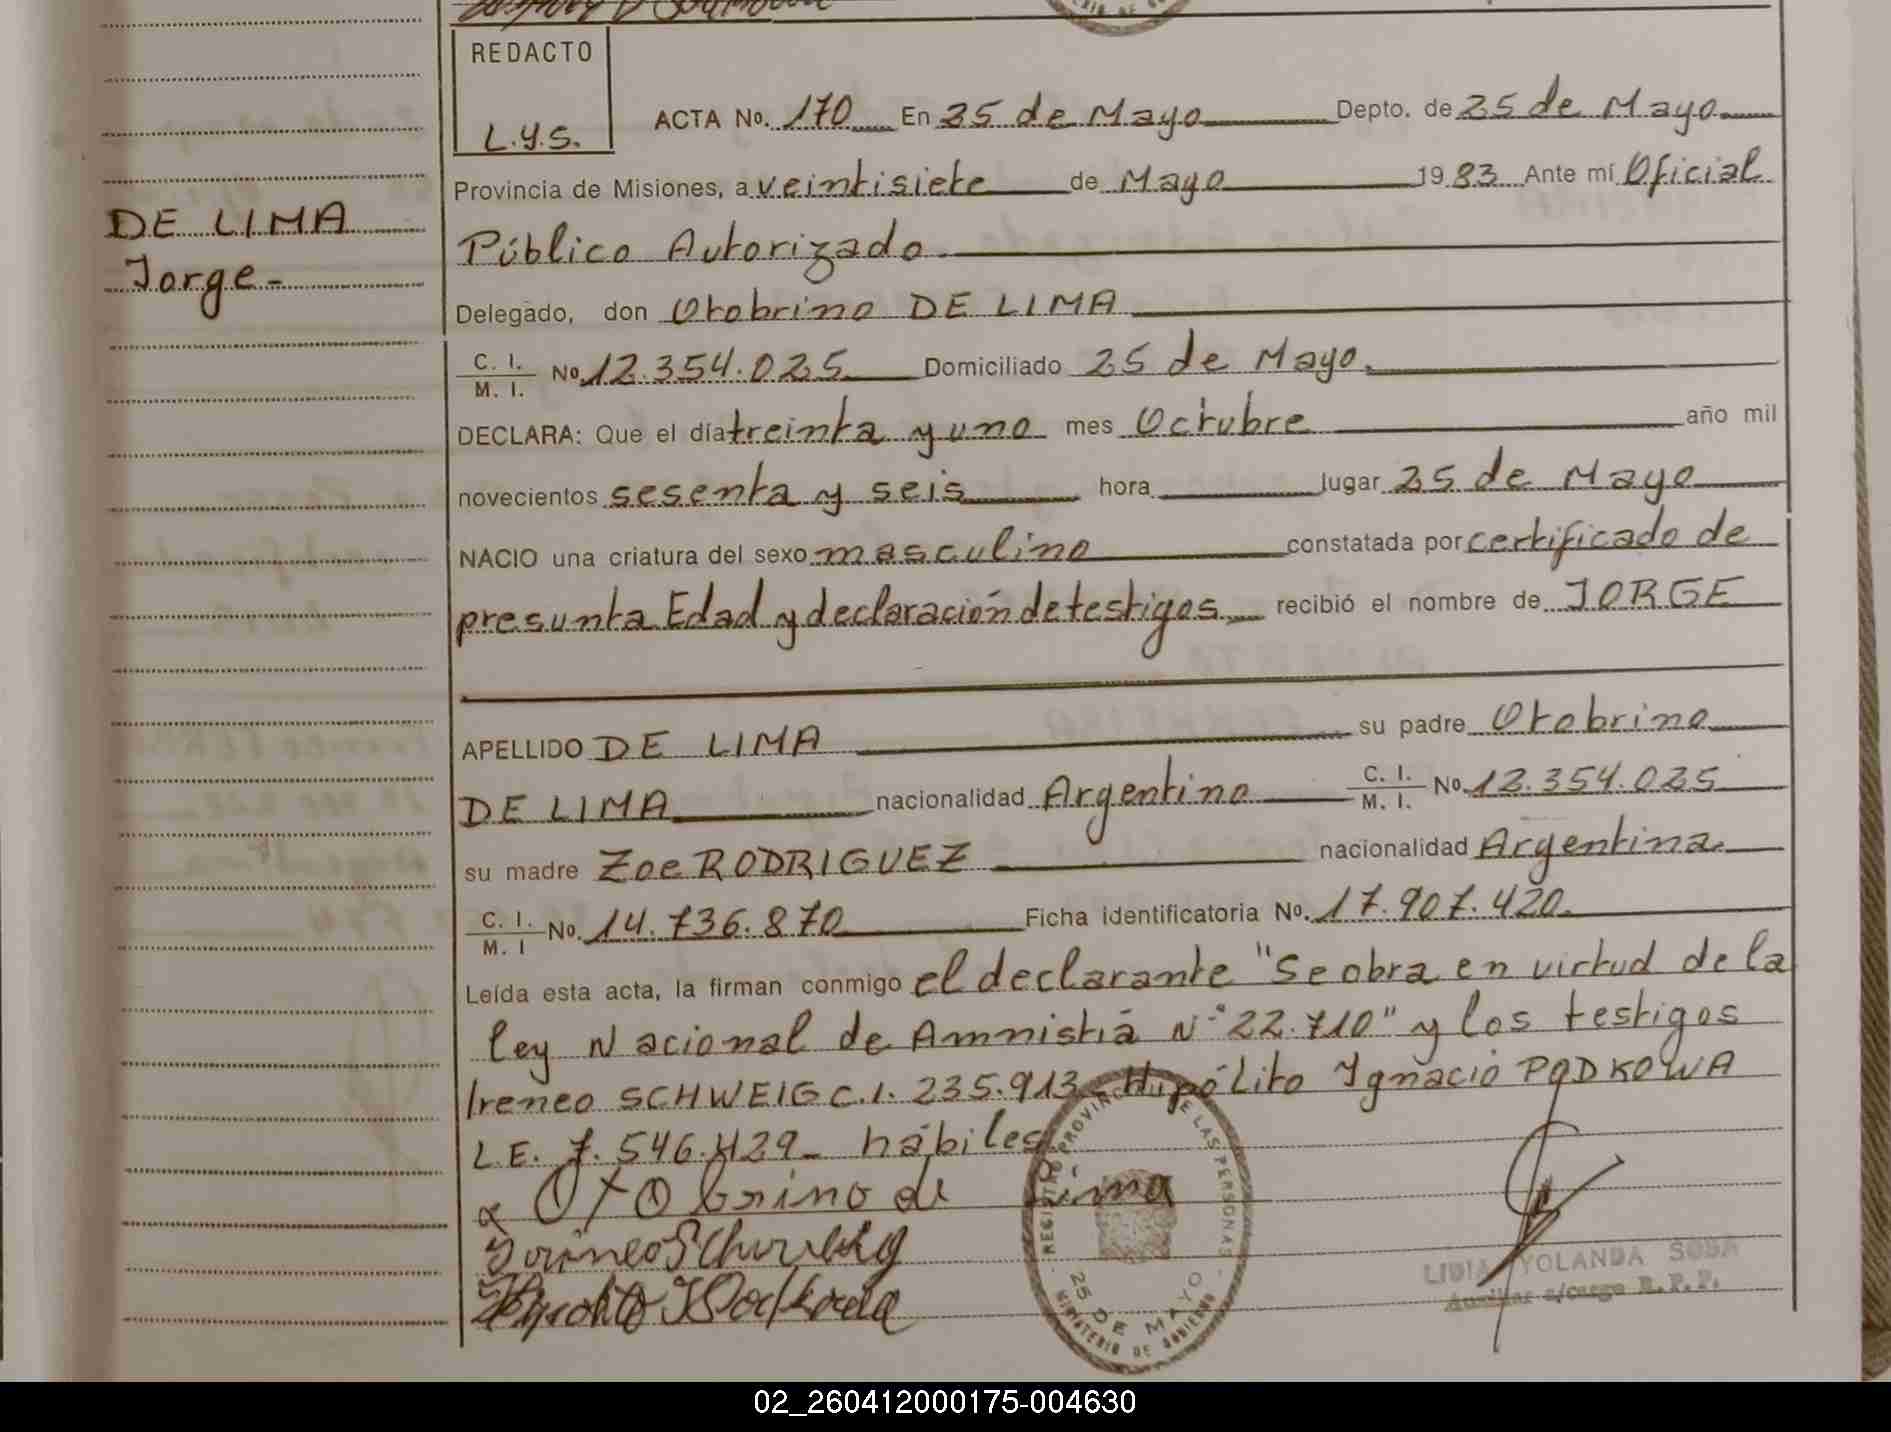 REDACTO
L.y.s.
ACTA No. 170 En 25 de Mayo Depto. de 25 de Mayo
Provincia de Misiones, a veintisiete de Mayo 1983 Ante mí Oficial
Público Autorizado
DE LIMA
Jorge-
Delegado, don Otobrino DE LIMA
C. I. / M. I. No 12.354.025 Domiciliado 25 de Mayo.
DECLARA: Que el día treinta y uno mes Octubre año mil
novecientos sesenta y seis hora lugar 25 de Mayo
NACIO una criatura del sexo masculino constatada por certificado de
presunta Edad y declaración de testigos recibió el nombre de JORGE
APELLIDO DE LIMA su padre Otobrino
DE LIMA nacionalidad Argentino C. I. / M. I. No. 12.354.025
su madre Zoe RODRIGUEZ nacionalidad Argentina.
C. I. / M. I No. 14.736.870 Ficha identificatoria No. 17.907.420.
Leída esta acta, la firman conmigo el declarante "Se obra en virtud de la
ley Nacional de Amnistía N° 22.710" y los testigos
Ireneo SCHWEIG C.I. 235.913 Hipólito Ignacio PODKOWA
L.E. 7.546.429_ hábiles
Otobrino de Lima
REGISTRO PROVINCIAL DE LAS PERSONAS
25 DE MAYO
MINISTERIO DE GOBIERNO
LIDIA YOLANDA SOSA
Auxiliar a/cargo R.P.P.
02_260412000175-004630